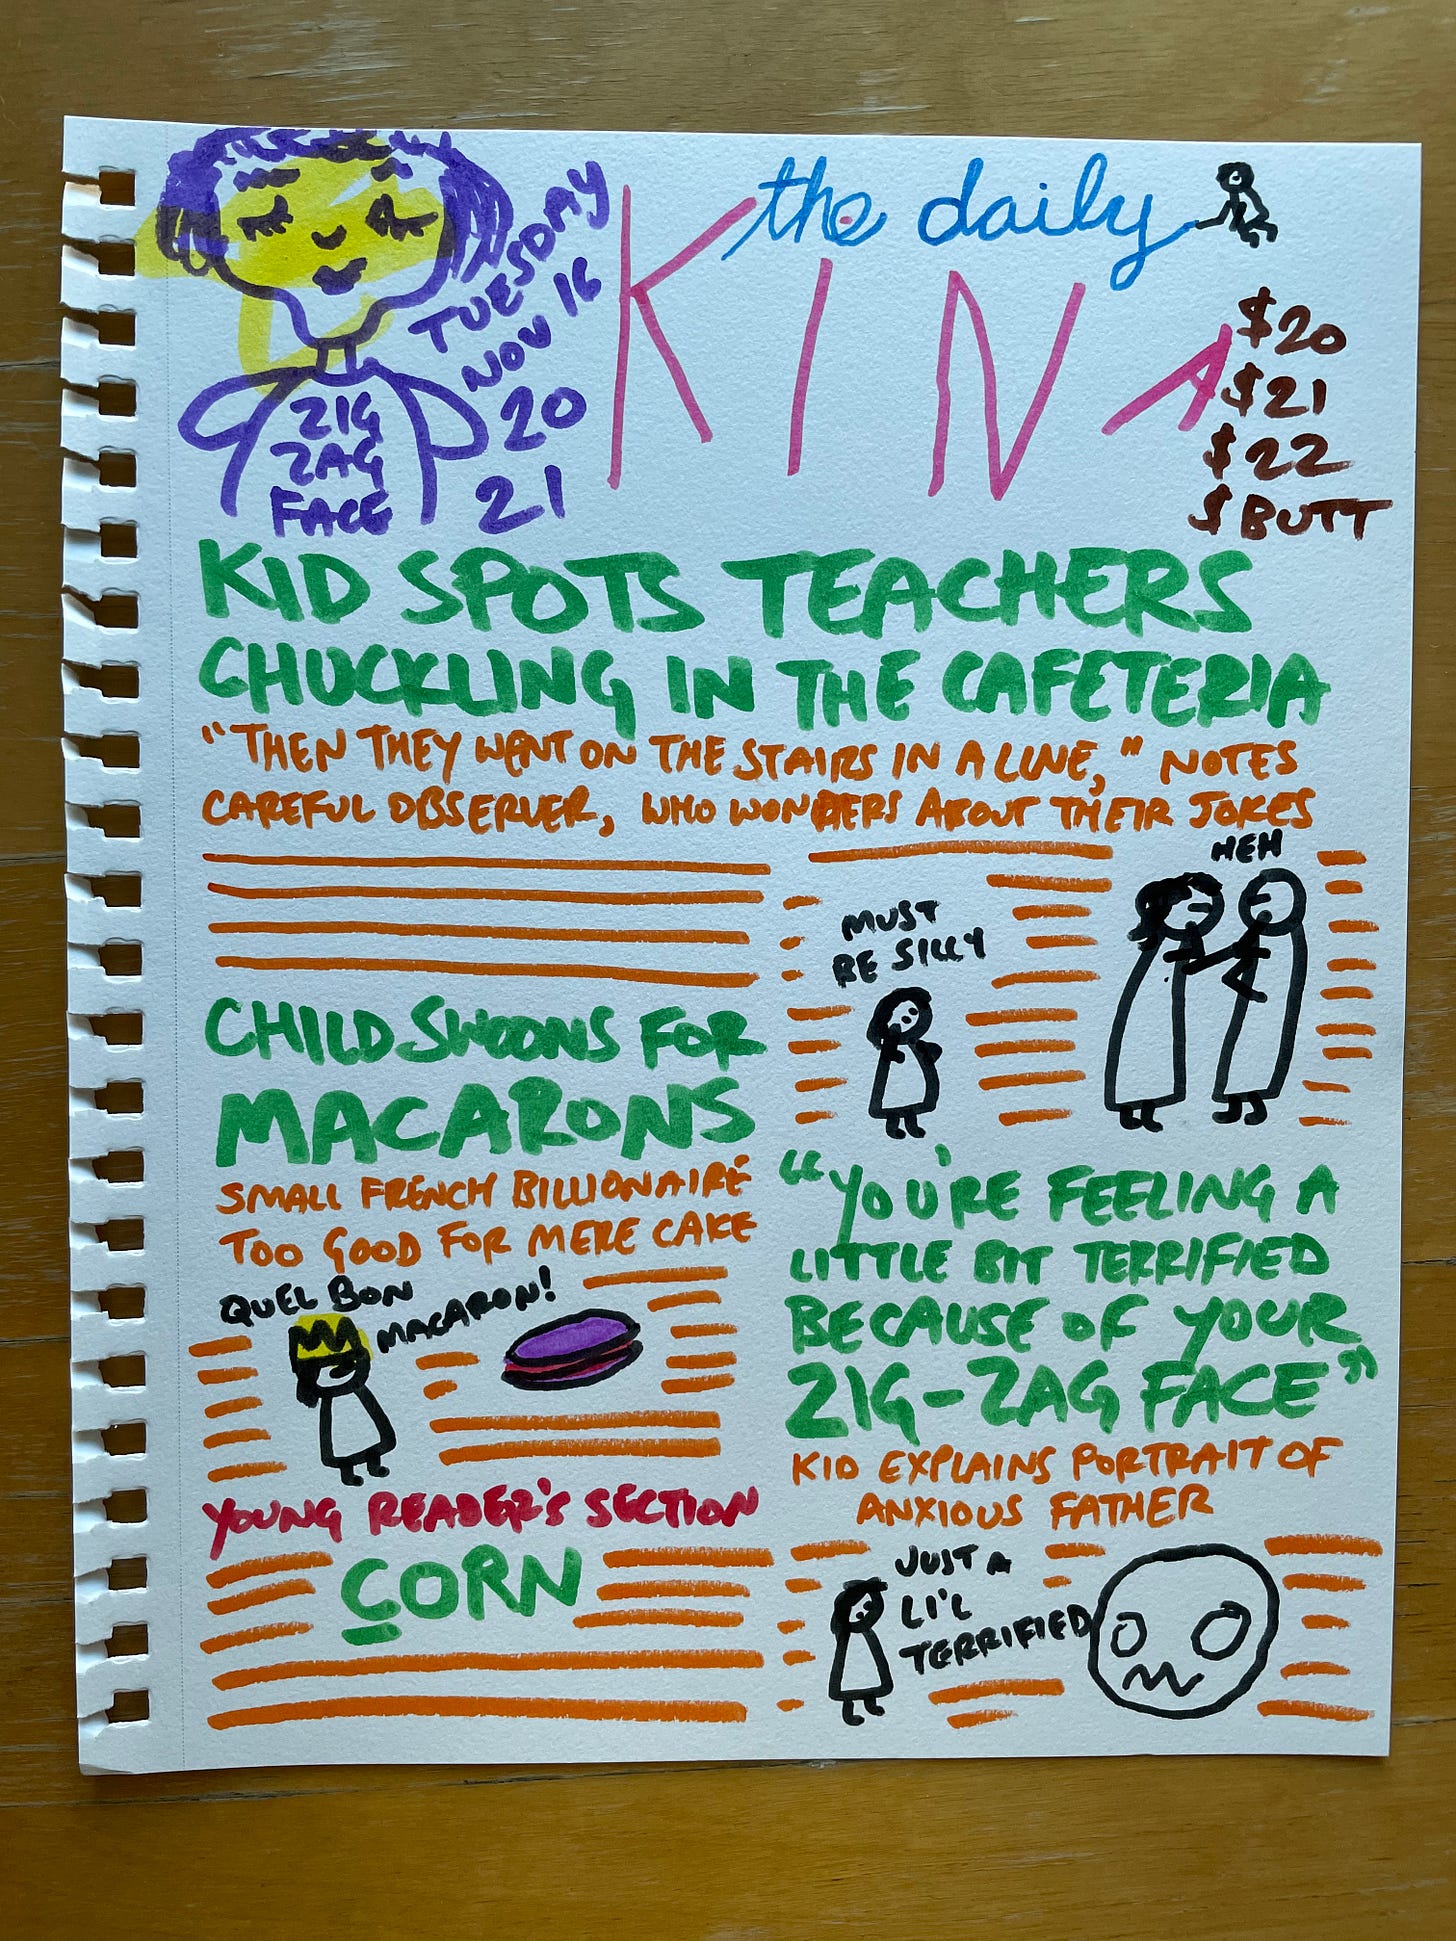 the daily
KINA
TUESDAY
NOV 16
20
21
ZIG
ZAG
FACE
$20
$21
$22
$BUTT
KID SPOTS TEACHERS
CHUCKLING IN THE CAFETERIA
"THEN THEY WENT ON THE STAIRS IN A LINE," NOTES
CAREFUL OBSERVER, WHO WONDERS ABOUT THEIR JOKES
MUST
BE SILLY
HEH
CHILD SWOONS FOR
MACARONS
SMALL FRENCH BILLIONAIRE
TOO GOOD FOR MERE CAKE
QUEL BON
MACARON!
YOUNG READER'S SECTION
CORN
"YOU'RE FEELING A
LITTLE BIT TERRIFIED
BECAUSE OF YOUR
ZIG-ZAG FACE"
KID EXPLAINS PORTRAIT OF
ANXIOUS FATHER
JUST A
LI'L
TERRIFIED